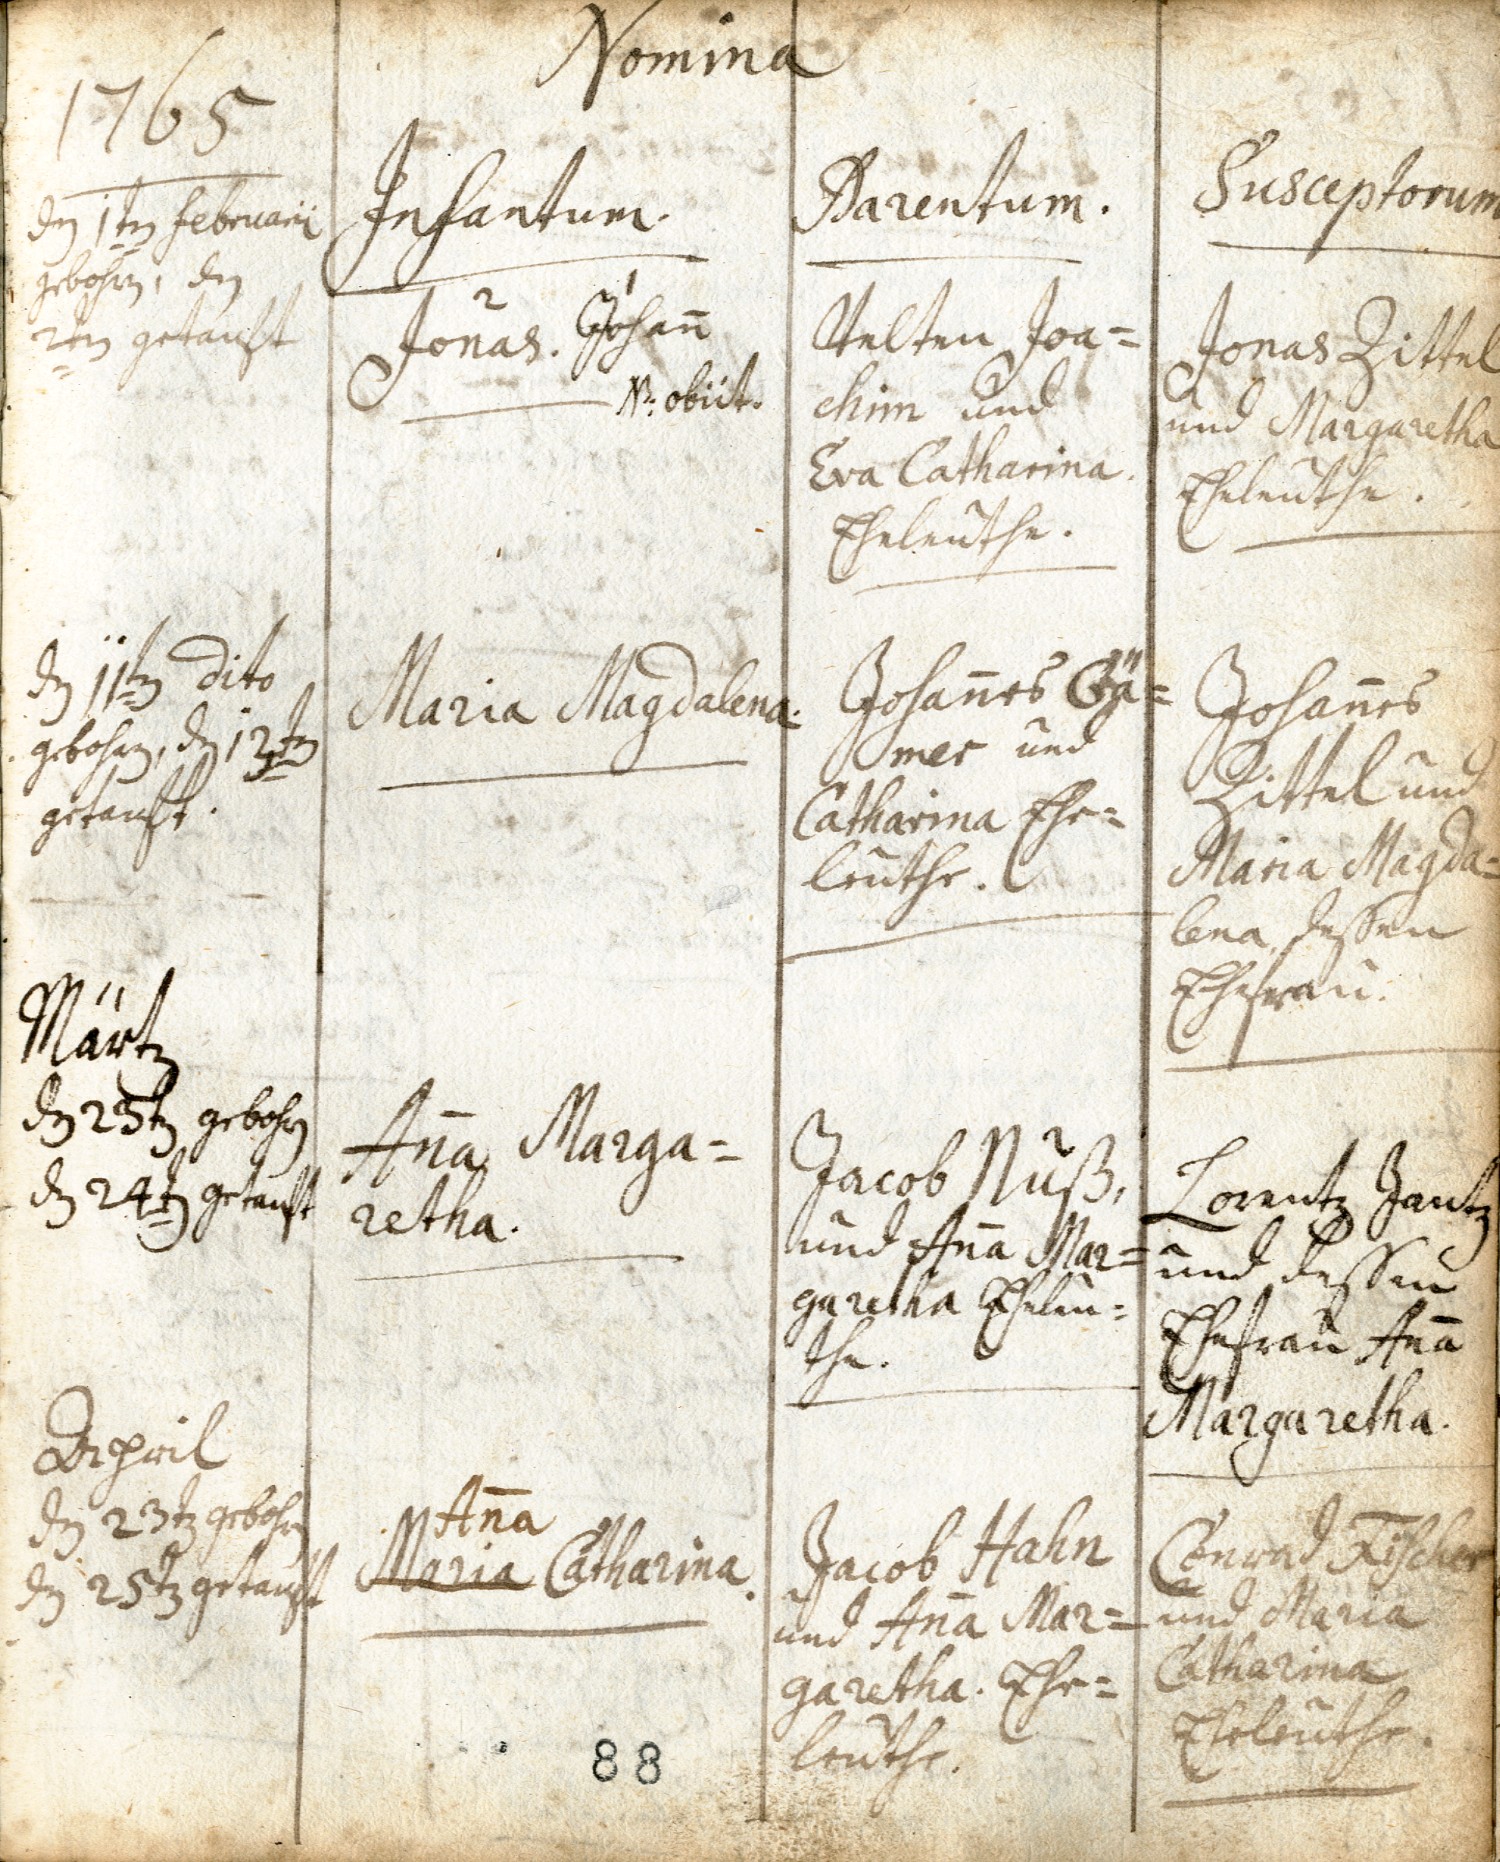 Nomina
1765
Infantum.
Parentum.
Susceptorum
dn 1tn februarii
gebohrn, dn
2tn getauft
2 1
Jonas. Johañ
NB: obiit.
Velten Joa=
chim und
Eva Catharina.
Eheleuthe.
Jonas Zittel
und Margaretha
Eheleuthe.
dn 11tn dito
gebohrn, dn 12tn
getauft.
Maria Magdalena.
Johañes
mer und
Catharina Ehe=
leuthe.
Johañes
Zittel und
Maria Magda=
lena, dessen
Ehefrau.
Märtz
dn 23tn gebohrn
dn 24tn getauft
Aña Marga=
retha.
Jacob Nuß,
und Aña Mar=
garetha Eheleu=
the.
Lorentz Jantz
und dessen
Ehefrau Aña
Margaretha.
April
dn 23tn gebohrn
dn 25tn getauft
Aña
Maria Catharina.
Jacob Hahn
und Aña Mar=
garetha. Ehe=
leuthe.
Conrad Fischer
und Maria
Catharina
Eheleuthe.
88